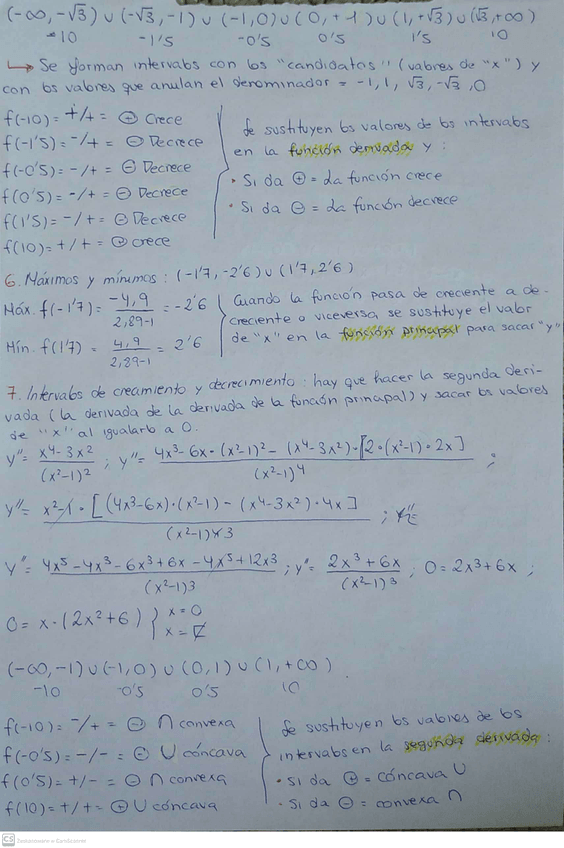 (-∞, -√3) ∪ (-√3, -1) ∪ (-1, 0) ∪ (0, +1) ∪ (1, +√3) ∪ (√3, +∞)
-10 -1'5 -0'5 0'5 1'5 10
↳ Se forman intervalos con los "candidatos" (valores de "x") y
con los valores que anulan el denominador = -1, 1, √3, -√3, 0
f(-10) = +/+ = ⊕ Crece
f(-1'5) = -/+ = ⊖ Decrece
f(-0'5) = -/+ = ⊖ Decrece
f(0'5) = -/+ = ⊖ Decrece
f(1'5) = -/+ = ⊖ Decrece
f(10) = +/+ = ⊕ crece
Se sustituyen los valores de los intervalos
en la función derivada y:
• Si da ⊕ = La función crece
• Si da ⊖ = La función decrece
6. Máximos y mínimos: (-1'7, -2'6) ∪ (1'7, 2'6)
Máx. f(-1'7) = -4,9 / 2,89-1 = -2'6
Mín. f(1'7) = 4,9 / 2,89-1 = 2'6
Cuando la función pasa de creciente a de-
creciente o viceversa se sustituye el valor
de "x" en la función principal para sacar "y"
7. Intervalos de crecimiento y decrecimiento: hay que hacer la segunda deri-
vada (la derivada de la derivada de la función principal) y sacar los valores
de "x" al igualarlo a 0.
y'' = x⁴-3x² / (x²-1)² ; y'' = 4x³-6x·(x²-1)² - (x⁴-3x²)·[2·(x²-1)·2x] / (x²-1)⁴ ;
y'' = x²-1·[(4x³-6x)·(x²-1) - (x⁴-3x²)·4x] / (x²-1)⁴3 ;
y'' = 4x⁵-4x³-6x³+6x-4x⁵+12x³ / (x²-1)3 ; y'' = 2x³+6x / (x²-1)³ ; 0 = 2x³+6x ;
0 = x·(2x²+6) } x=0
x=∄
(-∞, -1) ∪ (-1, 0) ∪ (0, 1) ∪ (1, +∞)
-10 -0'5 0'5 10
f(-10) = -/+ = ⊖ ∩ convexa
f(-0'5) = -/- = ⊕ ∪ cóncava
f(0'5) = +/- = ⊖ ∩ convexa
f(10) = +/+ = ⊕ ∪ cóncava
Se sustituyen los valores de los
intervalos en la segunda derivada:
• Si da ⊕ = cóncava ∪
• Si da ⊖ = convexa ∩
CS Escaneado con CamScanner